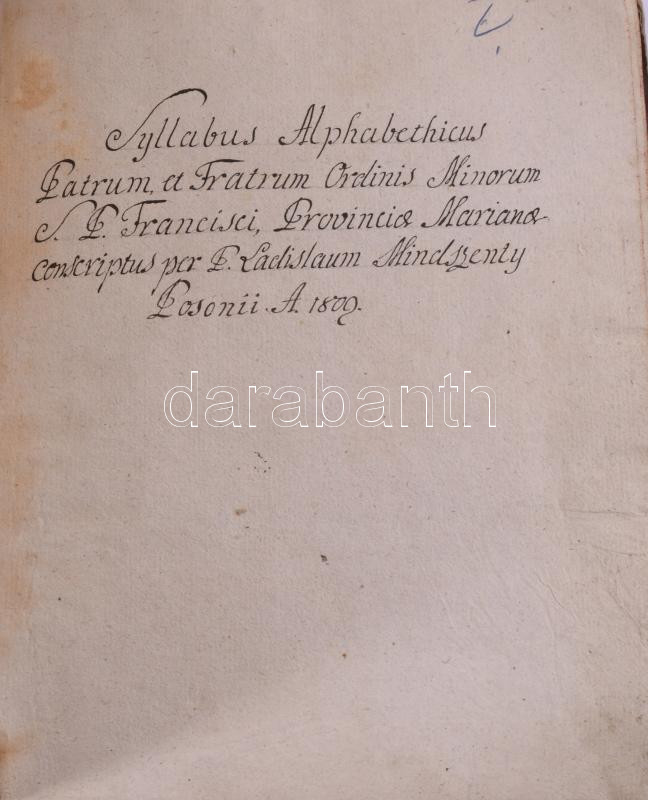 Syllabus Alphabethicus
Patrum, et Fratrum Ordinis Minorum
S. P. Francisci, Provinciæ Marianæ
conscriptus per P. Ladislaum Mindszenty
Posonii. A. 1809.
darabanth